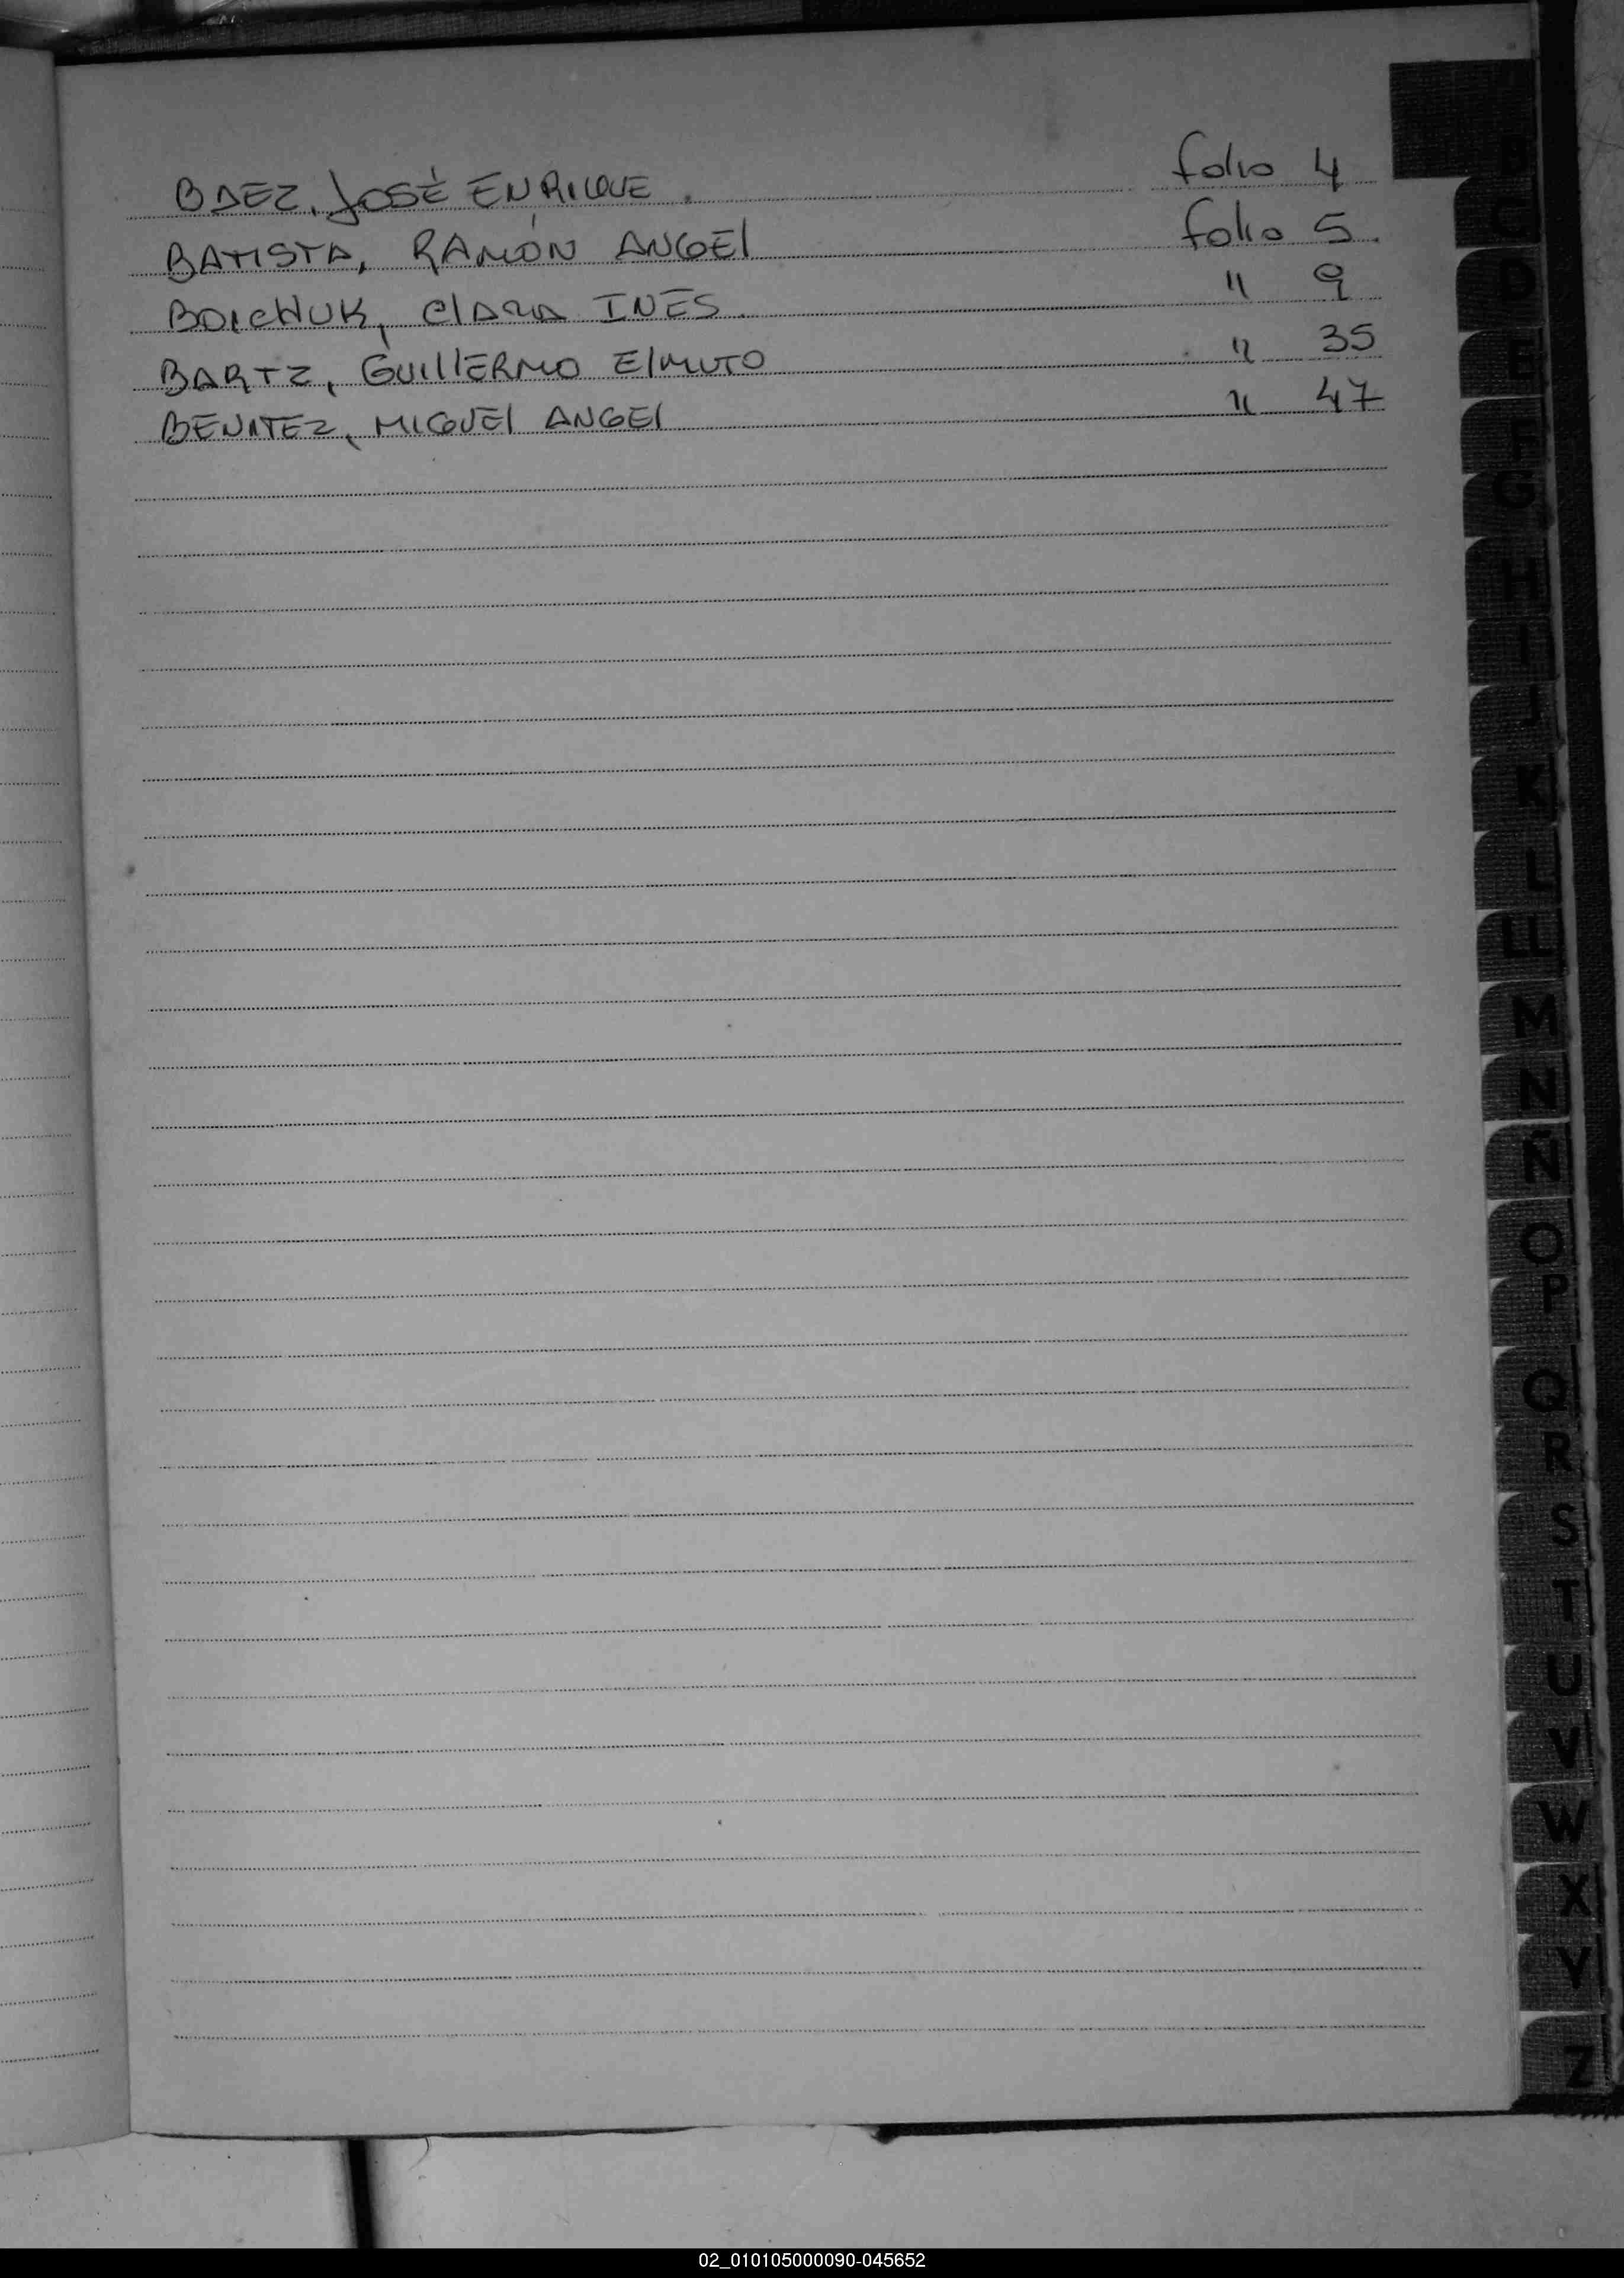 BAEZ, JOSÉ ENRIQUE. folio 4
BATISTA, RAMÓN ANGEl folio 5.
BOICHUK, ClARA INÉS. " 9
BARTZ, GUIllERMO ElMUTO " 35
BENITEZ, MIGUEl ANGEl " 47
B
C
D
E
F
G
H
I
J
K
L
LL
M
N
Ñ
O
P
Q
R
S
T
U
V
W
X
Y
Z
02_010105000090-045652